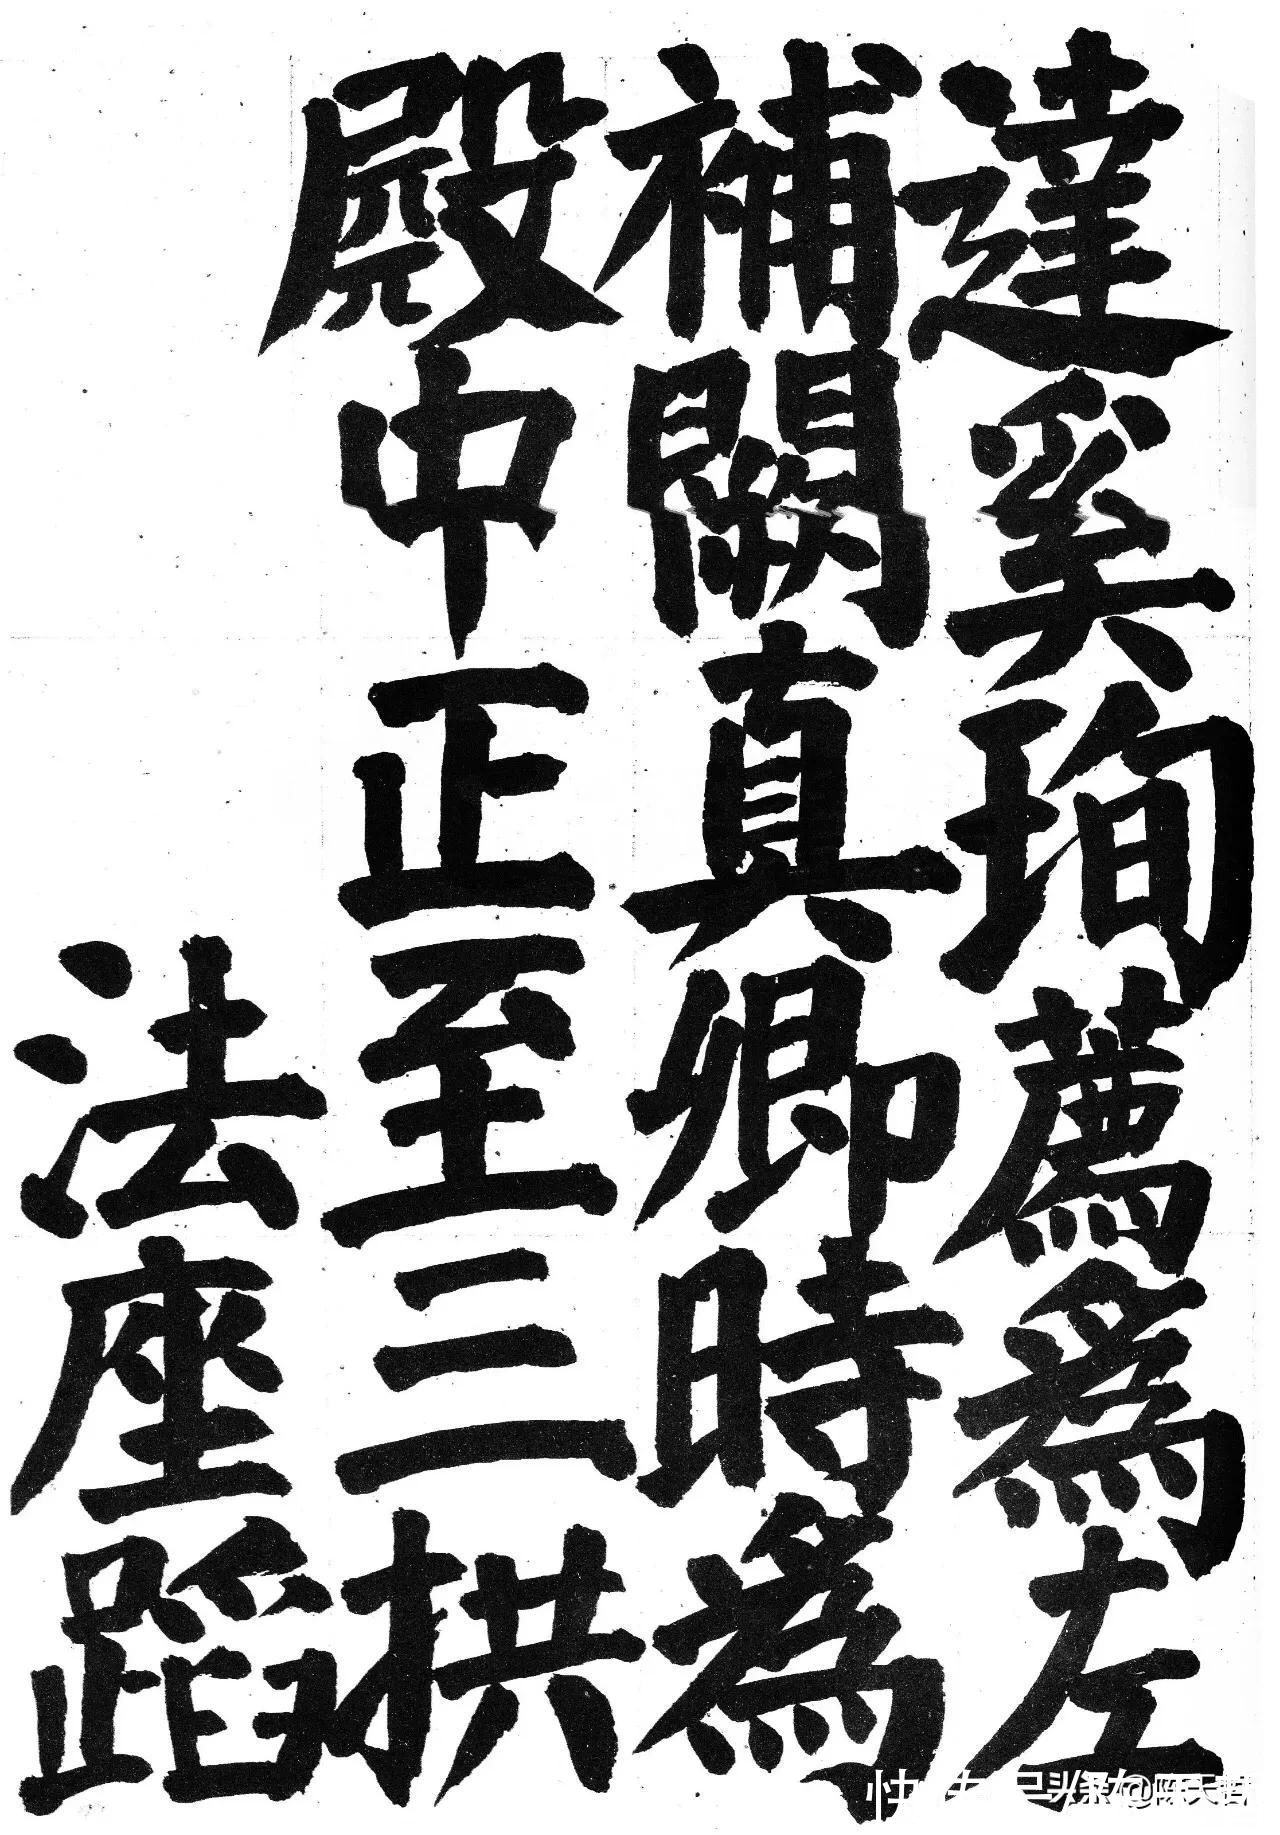 達奚珣薦為左
補闕真卿時為
殿中正至三拱
法座蹈